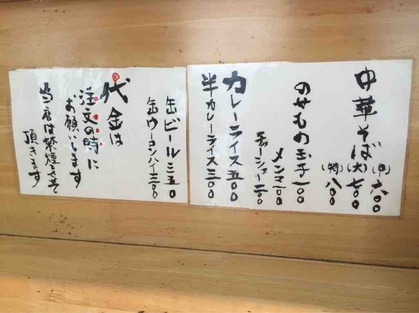 中華そば(並)六〇〇
(大)七〇〇
(特)八〇〇
のせもの玉子一〇〇
メンマ一〇〇
チャーシュー二〇〇
カレーライス五〇〇
半カレーライス三〇〇
缶ビール三五〇
缶ウーロンハイ三〇〇
代金は
注文の時に
お願いします
当店は禁煙させて
頂きます